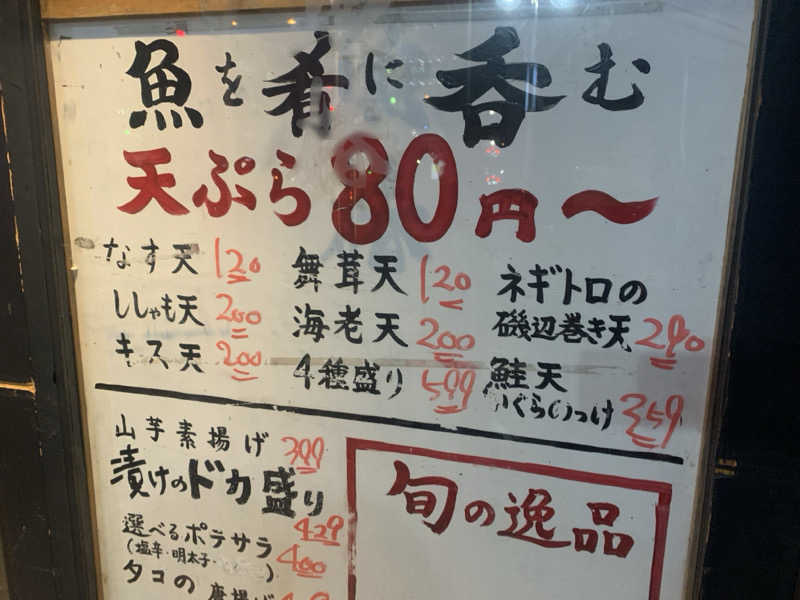 魚を肴に呑む
天ぷら80円～
なす天 120
ししゃも天 200
キス天 200
舞茸天 120
海老天 200
4種盛り 599
ネギトロの
磯辺巻き天 290
鮭天
いくらのっけ 359
山芋素揚げ 399
漬けのドカ盛り
429
選べるポテサラ
(塩辛・明太子・ ) 400
タコの唐揚げ
旬の逸品